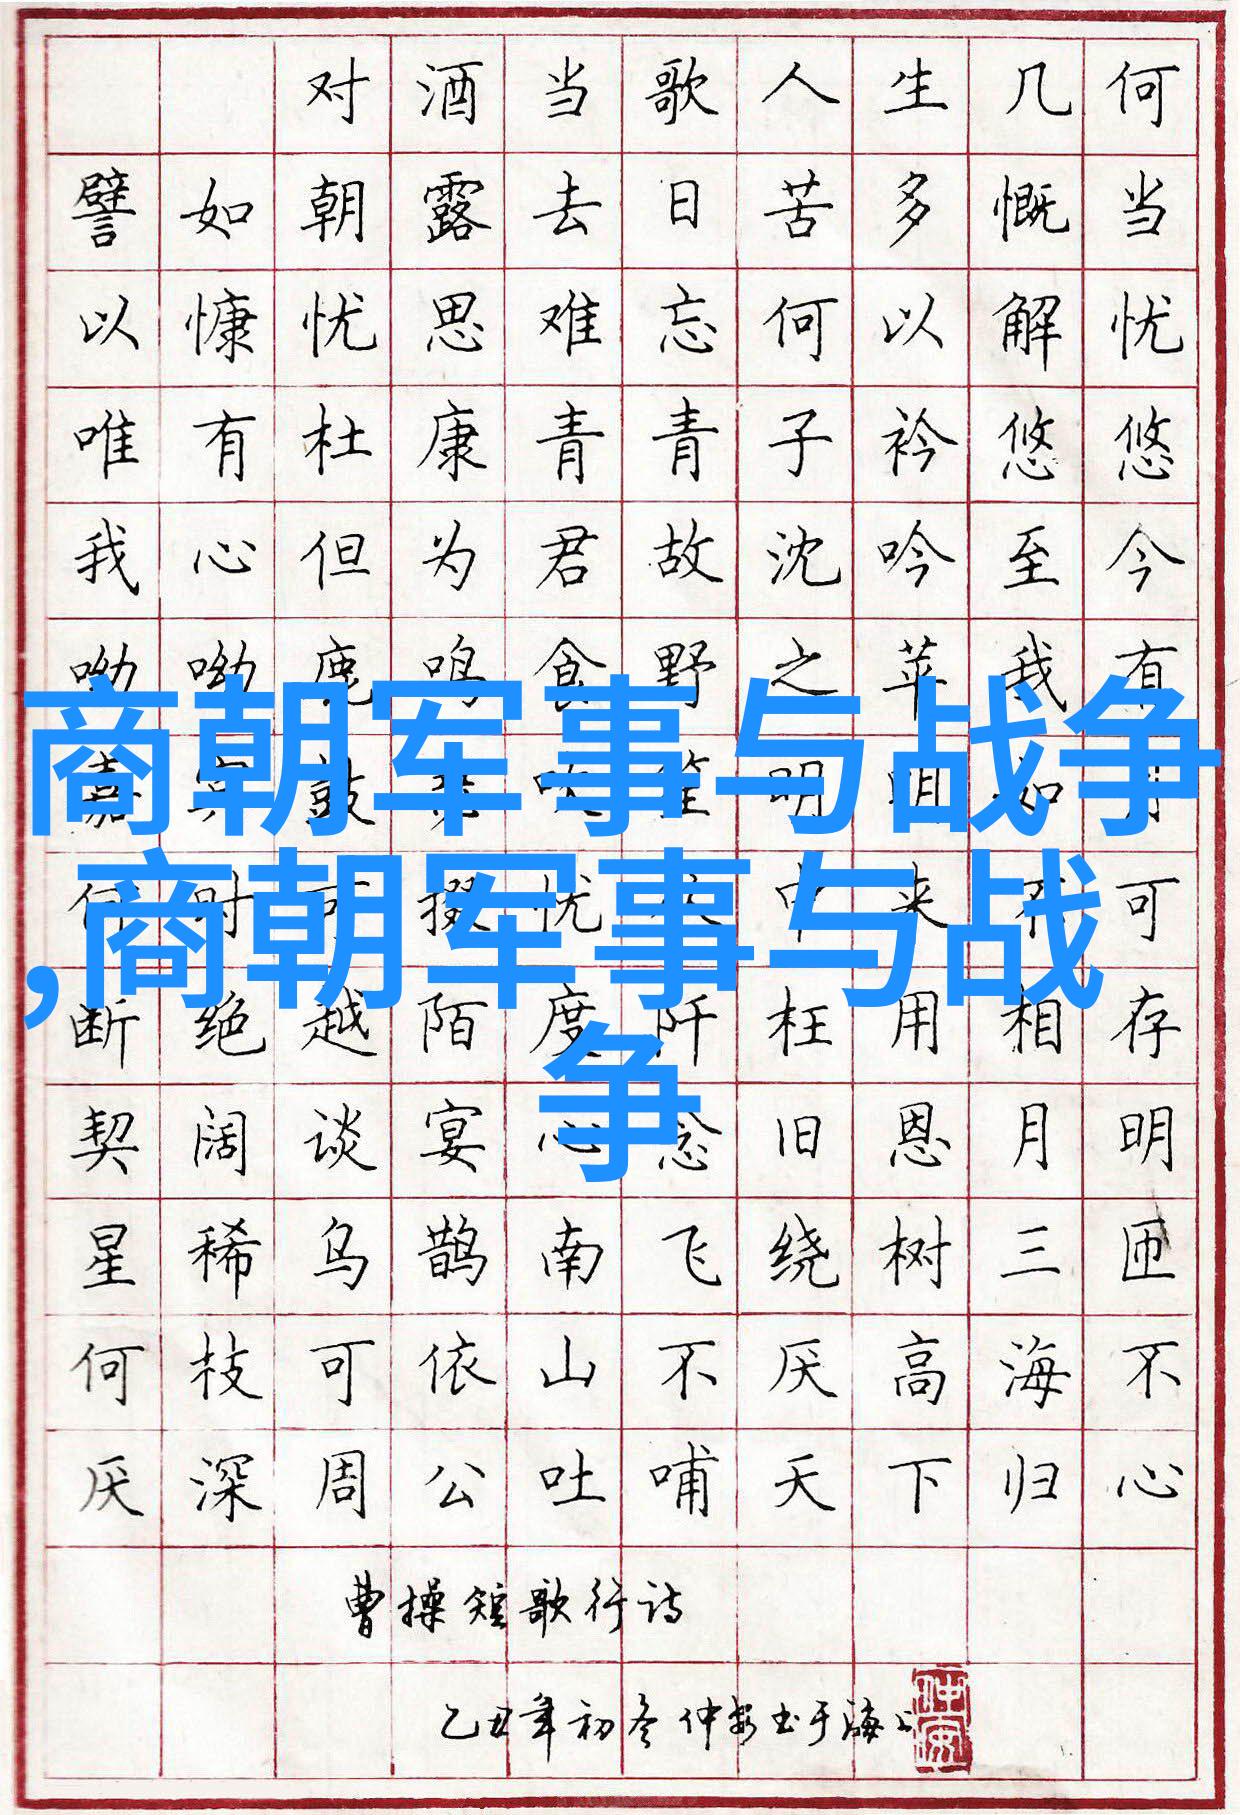 对酒当歌人生几何
譬如朝露去日苦多慨当
以慷忧思难忘何以解忧
唯有杜康青青子衿悠悠
我心但为君故沈吟至今
呦呦鹿鸣食野之苹我有
商朝军事与战争
嘉宾鼓瑟吹笙明明如月
,商朝军事与战
何时可掇忧从中来不可
断绝越陌度阡枉用相存
争
契阔谈宴心念旧恩月明
星稀乌鹊南飞绕树三匝
何枝可依山不厌高海不
厌深周公吐哺天下归心
曹操短歌行诗
乙丑年初冬仲安书于海上
仲安